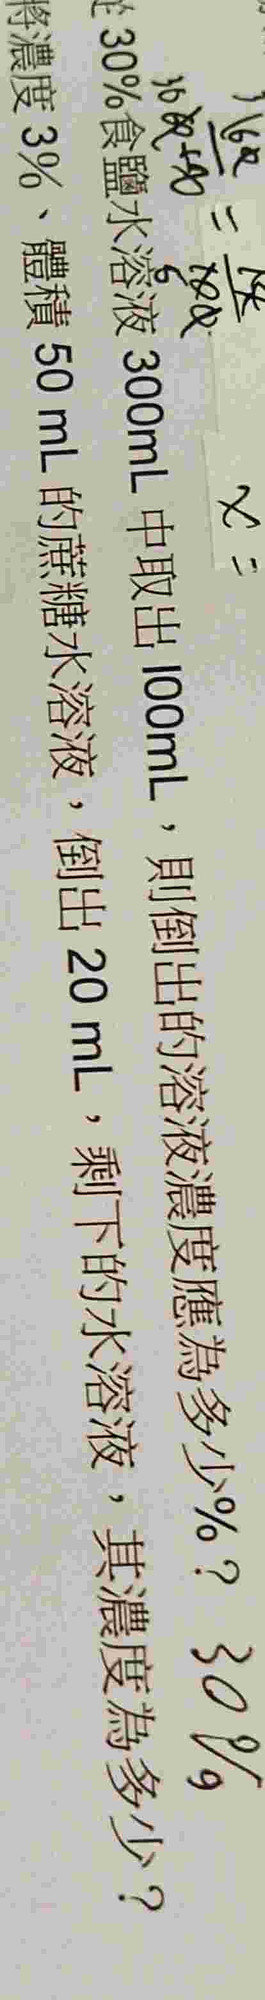 x =
30%食鹽水溶液 300mL 中取出 100mL，則倒出的溶液濃度應為多少%？ 30%
將濃度 3%、體積 50 mL 的蔗糖水溶液，倒出 20 mL，剩下的水溶液，其濃度為多少？